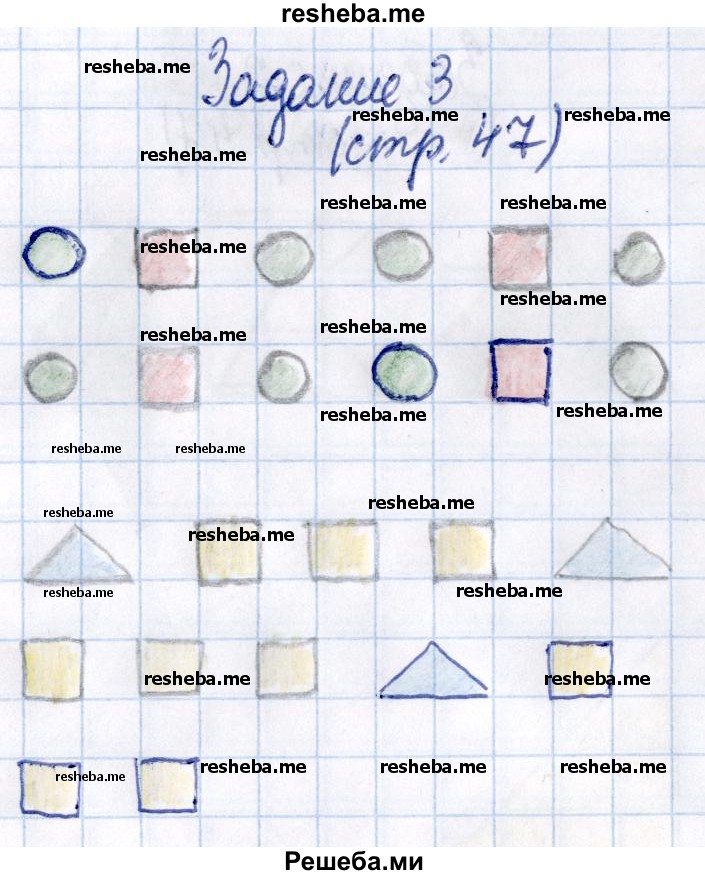 resheba.me
resheba.me
Задание 3
resheba.me resheba.me
(стр. 47)
resheba.me
resheba.me resheba.me
resheba.me
resheba.me
resheba.me resheba.me
resheba.me resheba.me
resheba.me resheba.me
resheba.me
resheba.me
resheba.me
resheba.me resheba.me
resheba.me resheba.me
resheba.me resheba.me resheba.me resheba.me
Решеба.ми